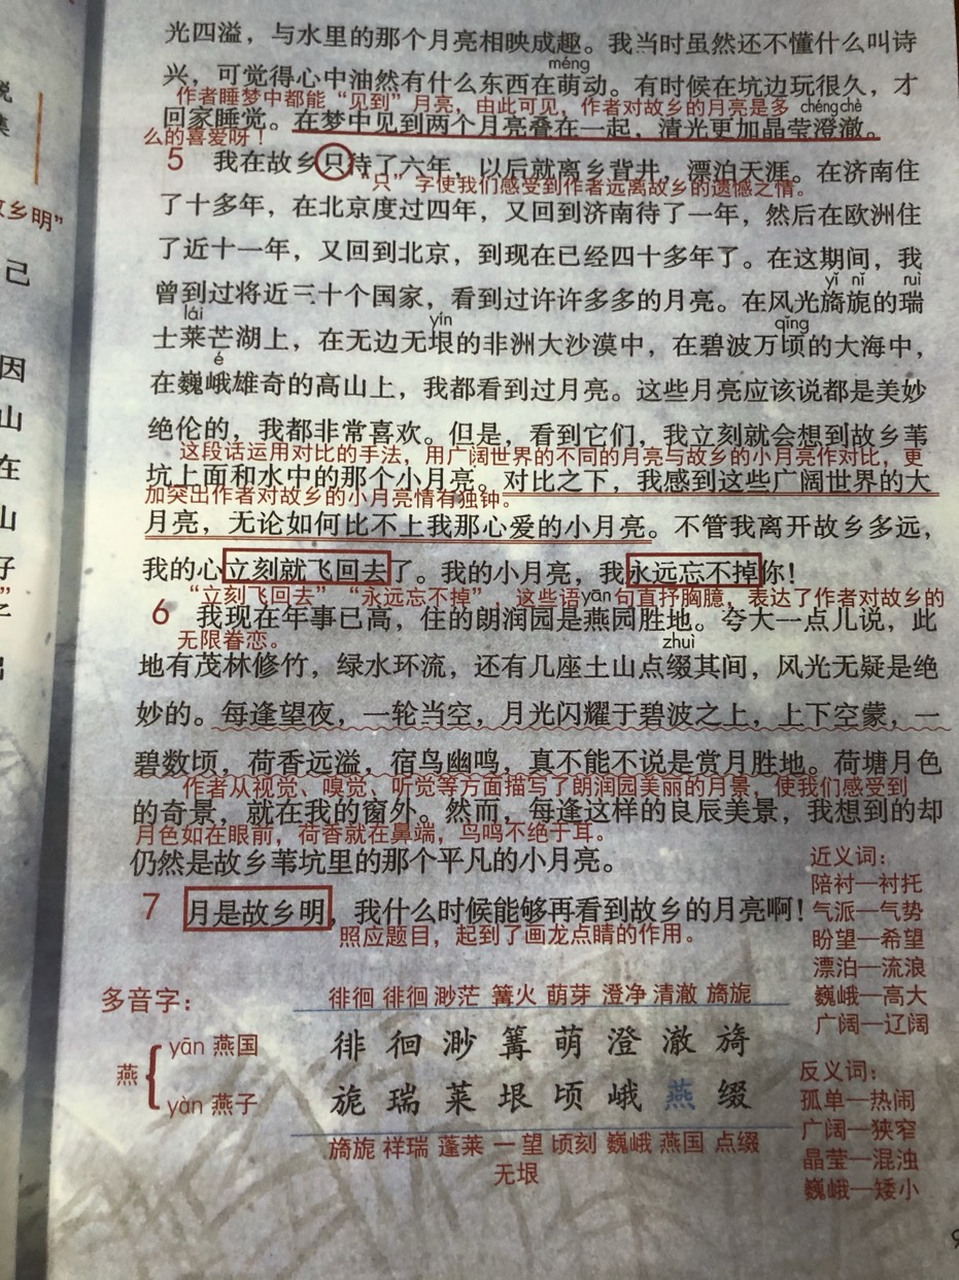 光四溢，与水里的那个月亮相映成趣。我当时虽然还不懂什么叫诗
méng
兴，可觉得心中油然有什么东西在萌动。有时候在坑边玩很久，才
作者睡梦中都能“见到”月亮，由此可见，作者对故乡的月亮是多
chéng chè
回家睡觉。在梦中见到两个月亮叠在一起，清光更加晶莹澄澈。
么的喜爱呀！
5 我在故乡只待了六年，以后就离乡背井，漂泊天涯。在济南住
“只”字使我们感受到作者远离故乡的遗憾之情。
了十多年，在北京度过四年，又回到济南待了一年，然后在欧洲住
了近十一年，又回到北京，到现在已经四十多年了。在这期间，我
yǐ nǐ ruì
曾到过将近三十个国家，看到过许许多多的月亮。在风光旖旎的瑞
lái yín qǐng
士莱芒湖上，在无边无垠的非洲大沙漠中，在碧波万顷的大海中，
é
在巍峨雄奇的高山上，我都看到过月亮。这些月亮应该说都是美妙
绝伦的，我都非常喜欢。但是，看到它们，我立刻就会想到故乡苇
这段话运用对比的手法，用广阔世界的不同的月亮与故乡的小月亮作对比，更
坑上面和水中的那个小月亮。对比之下，我感到这些广阔世界的大
加突出作者对故乡的小月亮情有独钟。
月亮，无论如何比不上我那心爱的小月亮。不管我离开故乡多远，
我的心立刻就飞回去了。我的小月亮，我永远忘不掉你！
“立刻飞回去”“永远忘不掉”，这些语句直抒胸臆，表达了作者对故乡的
yān
6 我现在年事已高，住的朗润园是燕园胜地。夸大一点儿说，此
无限眷恋。
zhuì
地有茂林修竹，绿水环流，还有几座土山点缀其间，风光无疑是绝
妙的。每逢望夜，一轮当空，月光闪耀于碧波之上，上下空蒙，一
碧数顷，荷香远溢，宿鸟幽鸣，真不能不说是赏月胜地。荷塘月色
作者从视觉、嗅觉、听觉等方面描写了朗润园美丽的月景，使我们感受到
的奇景，就在我的窗外。然而，每逢这样的良辰美景，我想到的却
月色如在眼前，荷香就在鼻端，鸟鸣不绝于耳。
仍然是故乡苇坑里的那个平凡的小月亮。
7 月是故乡明，我什么时候能够再看到故乡的月亮啊！
照应题目，起到了画龙点睛的作用。
近义词：
陪衬—衬托
气派—气势
盼望—希望
漂泊—流浪
巍峨—高大
广阔—辽阔
多音字：
燕
yān 燕国
yàn 燕子
徘徊 徘徊 渺茫 篝火 萌芽 澄净 清澈 旖旎
徘 徊 渺 篝 萌 澄 澈 旖
旎 瑞 莱 垠 顷 峨 燕 缀
旖旎 祥瑞 蓬莱 一望 顷刻 巍峨 燕国 点缀
无垠
反义词：
孤单—热闹
广阔—狭窄
晶莹—混浊
巍峨—矮小
故乡明”
己
因
山
在
山
好